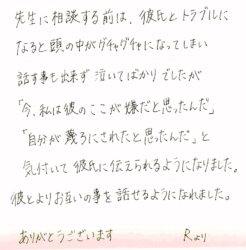 先生に相談する前は、彼氏とトラブルに
なると頭の中がグチャグチャになってしまい
話す事も出来ず泣いてばかりでしたが
「今、私は彼のここが嫌だと思ったんだ」
「自分が蔑ろにされたと思ったんだ」と
気付いて彼氏に伝えられるようになりました。
彼とよりお互いの事を話せるようになれました。
ありがとうございます　Rより